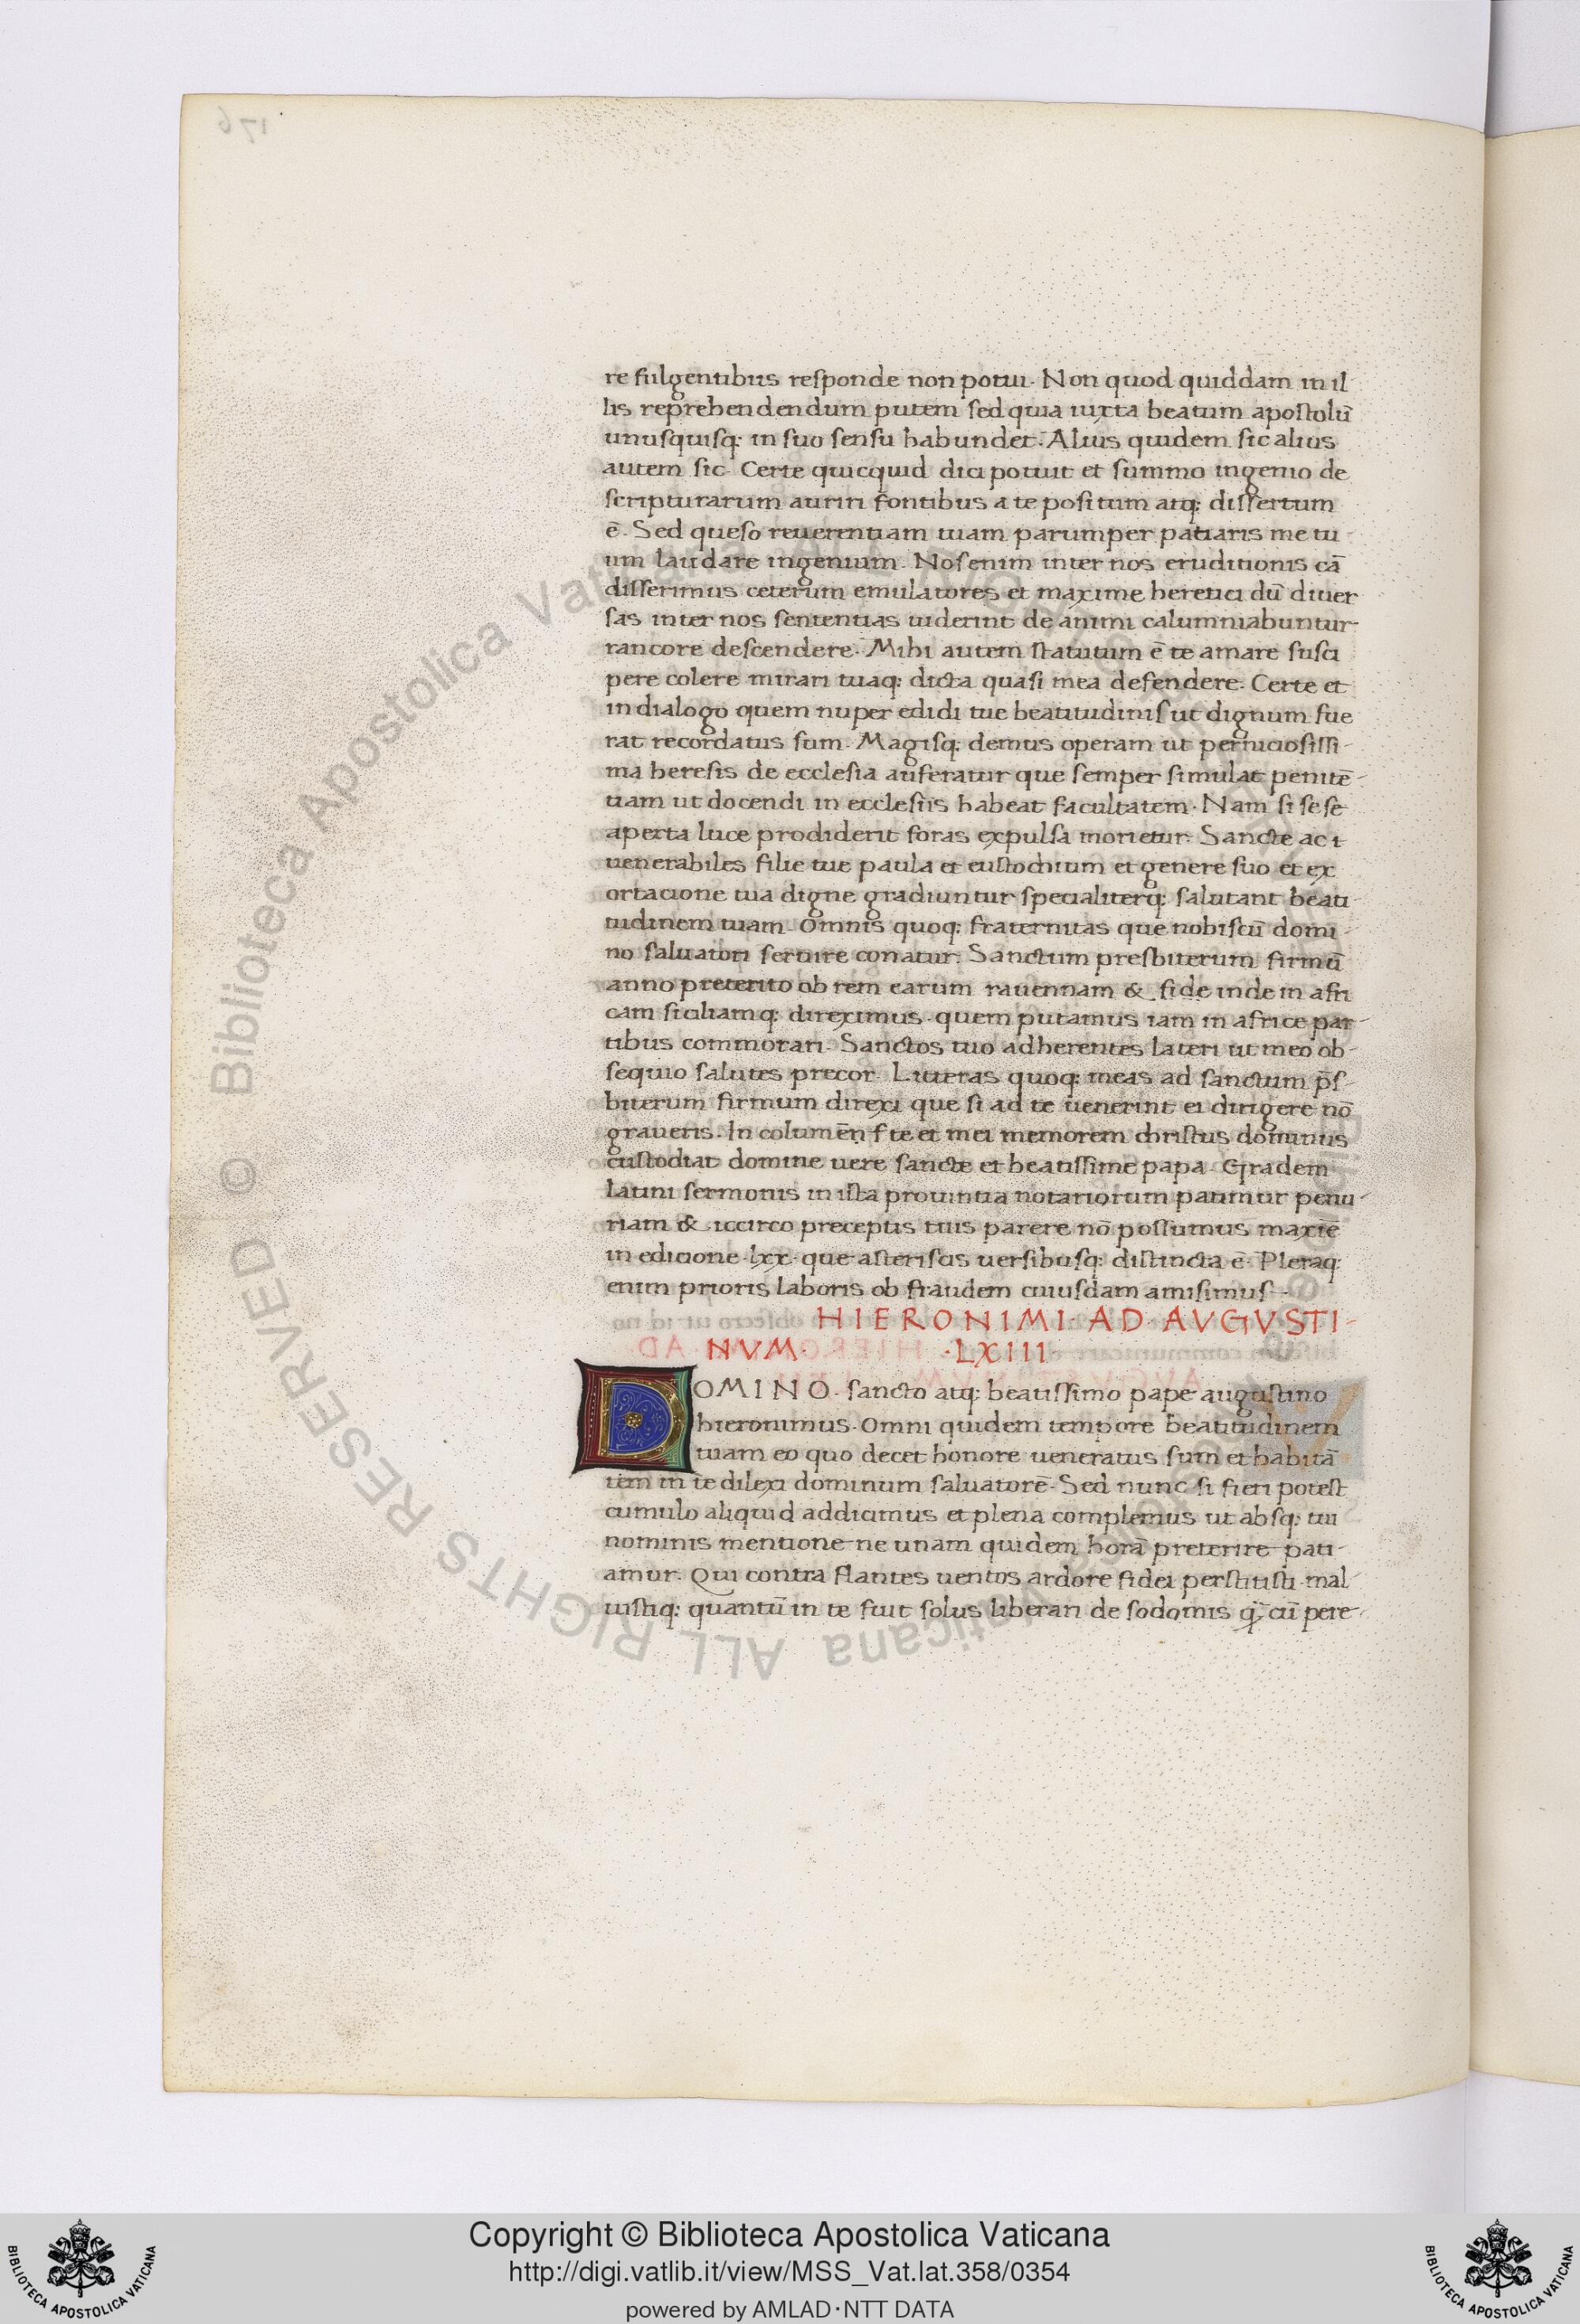 re fulgentibus responde non potui. Non quod quiddam in il
lis reprehendendum putem sed quia iuxta beatum apostolū
unusquisq: in suo sensu habundet. Alius quidem sic alius
autem sic. Certe quicquid dici potuit et summo ingenio de
scripturarum auriri fontibus a te positum atq: dissertum
ē. Sed queso reuerentiam tuam parumper patiaris me tu
um laudare ingenium. Nos enim inter nos eruditionis cā
disserimus ceterum emulatores et maxime heretici dū diuer
sas inter nos sententias uiderint de animi calumniabuntur
rancore descendere. Mihi autem statutum ē te amare susci
pere colere mirari tuaq: dicta quasi mea defendere. Certe et
in dialogo quem nuper edidi tue beatitudinis ut dignum fue
rat recordatus sum. Magisq: demus operam ut perniciosissi-
ma heresis de ecclesia auferatur que semper simulat penitē-
tiam ut docendi in ecclesiis habeat facultatem. Nam si sese
aperta luce prodiderit foras expulsa morietur. Sancte ac
uenerabiles filie tue paula et eustochium et genere suo et ex
ortacione tua digne gradiuntur specialiterq: salutant beati
tudinem tuam. Omnis quoq: fraternitas que nobiscū domi-
no saluatori seruire conatur. Sanctum presbiterum firmū
anno preterito ob rem earum rauennam & side inde in afri
cam siciliamq: direximus. quem putamus iam in africe par-
tibus commorari. Sanctos tuo adherentes lateri ut meo ob-
sequio salutes precor. Litteras quoq: meas ad sanctum p̄s-
biterum firmum direxi que si ad te uenerint ei dirigere nō
graueris. In columēn f te et mei memorem christus dominus
custodiat domine uere sancte et beatissime papa. Gradem
latini sermonis in ista prouintia notariorum patimur penu-
riam & iccirco preceptis tuis parere nō possumus maxīe
in edicione .lxx. que asteriscis uersibusq: distincta ē. Pleraq:
enim prioris laboris ob fraudem cuiusdam amisimus.
HIERONIMI. AD. AVGVSTI-
NVM. .LXIII.
DOMINO. sancto atq: beatissimo pape augustino
hieronimus. Omni quidem tempore beatitudinem
tuam eo quo decet honore ueneratus sum et habitā
tem in te dilexi dominum saluatorē. Sed nunc si fieri potest
cumulo aliquid addicimus et plena complemus ut absq: tui
nominis mentione ne unam quidem horā preterire pati-
amur. Qui contra flantes uentos ardore fidei perstitisti. mal
uistiq: quantū in te fuit solus liberari de sodomis q̄ cū pere-
176
© Biblioteca Apostolica Vaticana ALL RIGHTS RESERVED
Copyright © Biblioteca Apostolica Vaticana
http://digi.vatlib.it/view/MSS_Vat.lat.358/0354
powered by AMLAD·NTT DATA
BIBLIOTECA APOSTOLICA VATICANA
BIBLIOTECA APOSTOLICA VATICANA